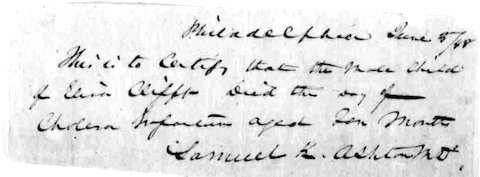 Philadelphia June 5/48
This is to Certify that the Male Child
of Eliza Clifft Died the Day of
Cholera Infantum aged Ten Month
Samuel K. Ashton MD.